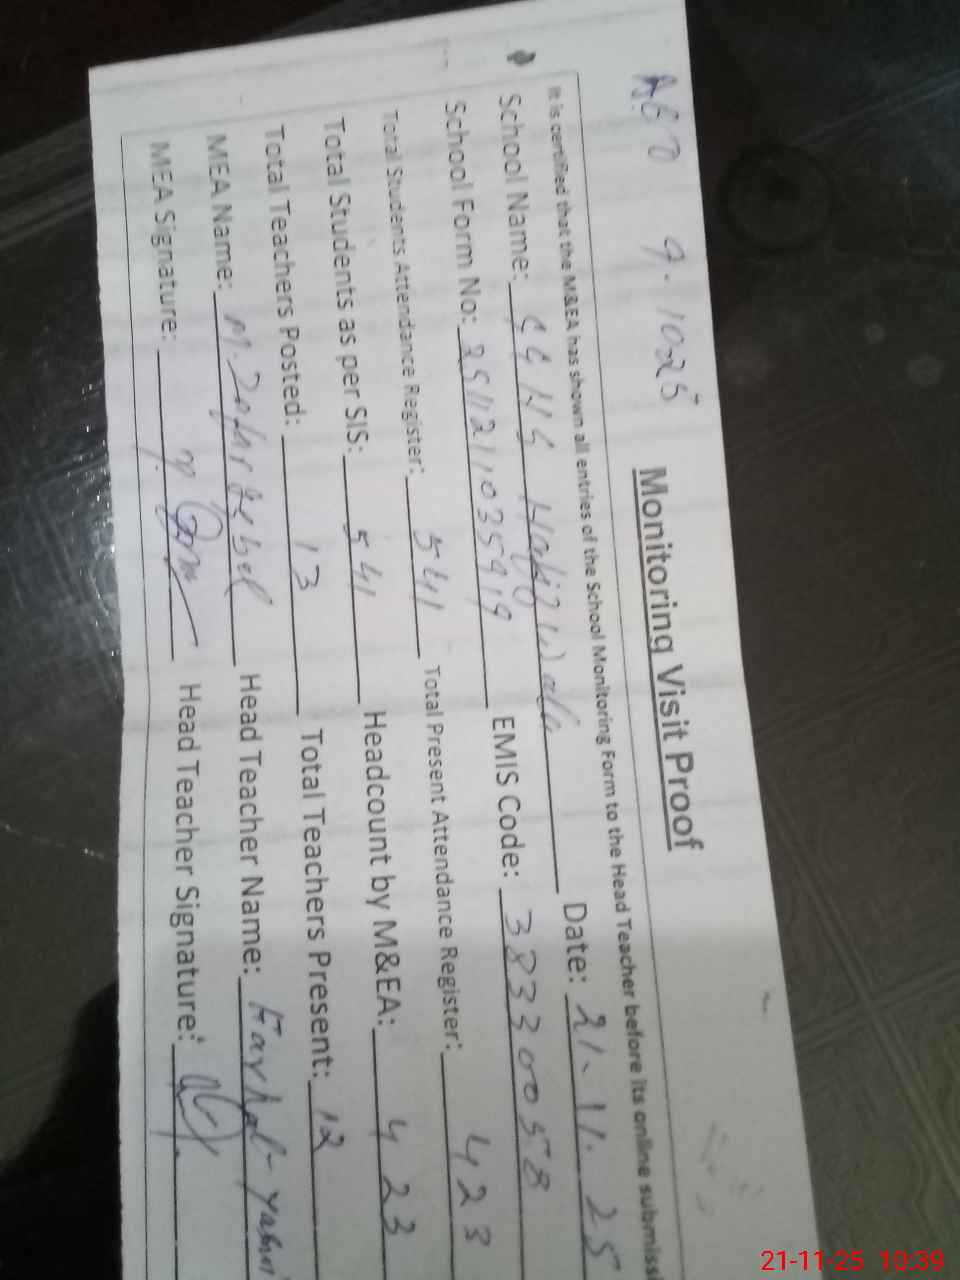 AEO 9-1025
Monitoring Visit Proof
It is certified that the M&EA has shown all entries of the School Monitoring Form to the Head Teacher before its online submissi
School Name: GGHS Date: 21-11-25
School Form No: EMIS Code: 38330058
Total Students Attendance Register: 541 Total Present Attendance Register: 423
Total Students as per SIS: 541 Headcount by M&EA: 423
Total Teachers Posted: 13 Total Teachers Present: 12
MEA Name: M. Head Teacher Name:
MEA Signature: Head Teacher Signature:
21-11-25 10:39